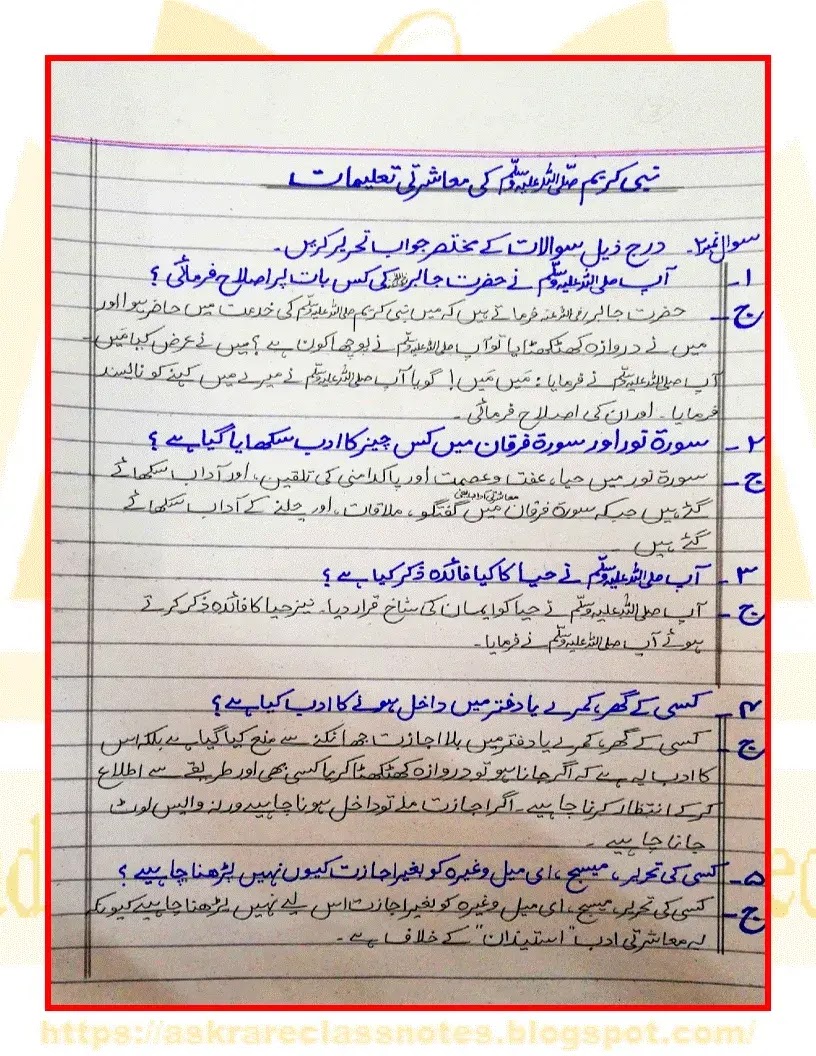 نبی کریم صلی اللہ علیہ وسلم کی معاشرتی تعلیمات
سوال نمبر ۲۔ درج ذیل سوالات کے مختصر جواب تحریر کریں۔
۱۔ آپ صلی اللہ علیہ وسلم نے حضرت جابر رضی اللہ عنہ کی کس بات پر اصلاح فرمائی؟
ج۔ حضرت جابر رضی اللہ عنہ فرماتے ہیں کہ میں نبی کریم صلی اللہ علیہ وسلم کی خدمت میں حاضر ہوا اور
میں نے دروازہ کھٹکھٹایا تو آپ صلی اللہ علیہ وسلم نے پوچھا کون ہے؟ میں نے عرض کیا مَیں۔
آپ صلی اللہ علیہ وسلم نے فرمایا: مَیں مَیں! گویا آپ صلی اللہ علیہ وسلم نے میرے میں کہنے کو ناپسند
فرمایا۔ اور ان کی اصلاح فرمائی۔
۲۔ سورۃ نور اور سورۃ فرقان میں کس چیز کا ادب سکھایا گیا ہے؟
ج۔ سورۃ نور میں حیا، عفت و عصمت اور پاکدامنی کی تلقین، اور آداب سکھائے
گئے ہیں جبکہ سورۃ فرقان میں گفتگو، ملاقات، اور چلنے کے آداب سکھائے
گئے ہیں
۳۔ آپ صلی اللہ علیہ وسلم نے حیا کا کیا فائدہ ذکر کیا ہے؟
ج۔ آپ صلی اللہ علیہ وسلم نے حیا کو ایمان کی شاخ قرار دیا۔ نیز حیا کا فائدہ ذکر کرتے
ہوئے آپ صلی اللہ علیہ وسلم نے فرمایا۔
۴۔ کسی کے گھر، کمرے یا دفتر میں داخل ہونے کا ادب کیا ہے؟
ج۔ کسی کے گھر، کمرے یا دفتر میں بلا اجازت جھانکنے سے منع کیا گیا ہے بلکہ اس
کا ادب یہ ہے کہ اگر جانا ہو تو دروازہ کھٹکھٹا کر یا کسی بھی اور طریقے سے اطلاع
کر کے انتظار کرنا چاہیے۔ اگر اجازت ملے تو داخل ہونا چاہیے ورنہ واپس لوٹ
جانا چاہیے۔
۵۔ کسی کی تحریر، میسج، ای میل وغیرہ کو بغیر اجازت کیوں نہیں پڑھنا چاہیے؟
ج۔ کسی کی تحریر، میسج، ای میل وغیرہ کو بغیر اجازت اس لیے نہیں پڑھنا چاہیے کیونکہ
یہ معاشرتی ادب "استیذان" کے خلاف ہے۔
https://askrareclassnotes.blogspot.com/